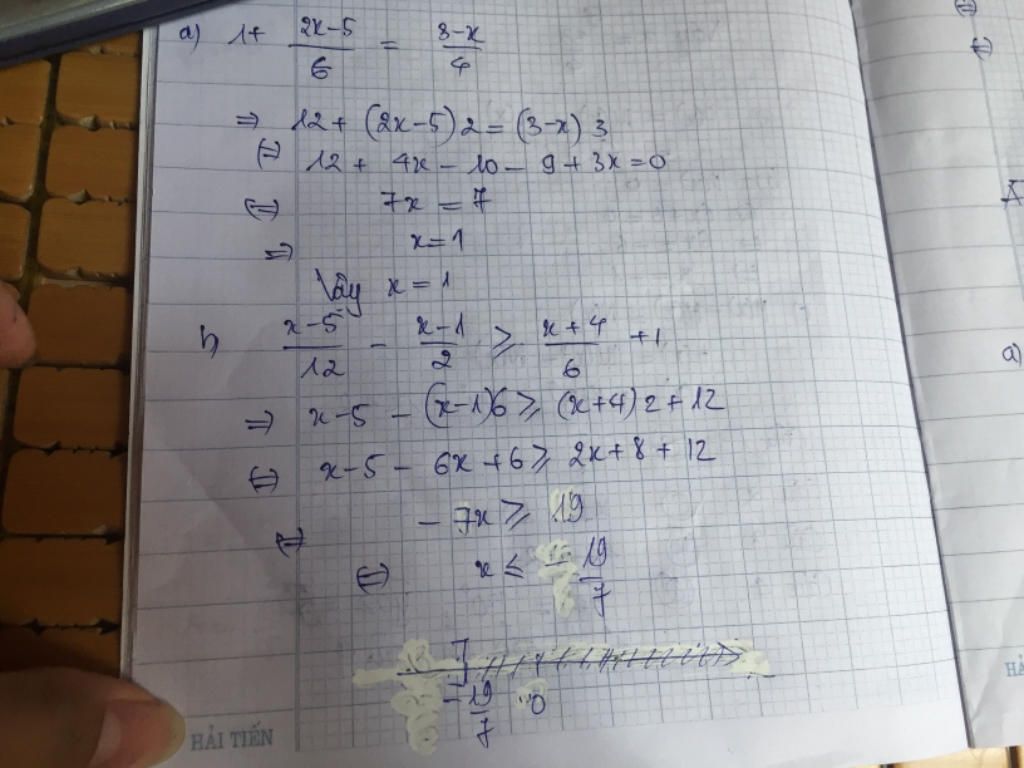 a) 1+ (2x-5)/6 = (3-x)/4
=> 12 + (2x-5)2 = (3-x)3
(=) 12 + 4x - 10 - 9 + 3x = 0
(=) 7x = 7
=> x = 1
Vậy x = 1
b, (x-5)/12 - (x-1)/2 ≥ (x+4)/6 +1
=> x-5 - (x-1)6 ≥ (x+4)2+12
(=) x-5 - 6x+6 ≥ 2x+8+12
(=) -7x ≥ 19
(=) x ≤ -19/7
]
-19/7 0
HẢI TIẾN
a)
HẢ